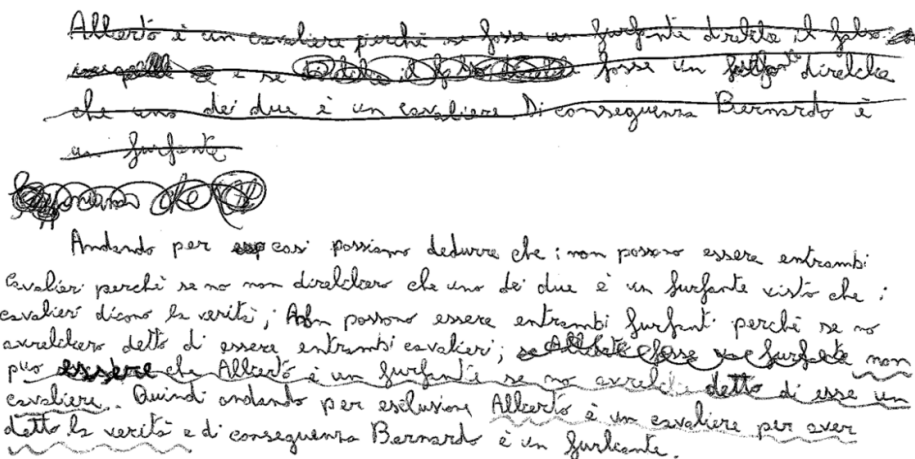 Alberto è un cavaliere perchè se fosse un furfante direbbe il falso.
e se fosse un furfante direbbe
che uno dei due è un cavaliere. Di conseguenza Bernardo è
un furfante
Andando per casi possiamo dedurre che: non possono essere entrambi
cavalieri perchè se no non direbbero che uno dei due è un furfante visto che i
cavalieri dicono la verità; Non possono essere entrambi furfanti perchè se no
avrebbero detto di essere entrambi cavalieri; se Alberto fosse furfante non
può essere che Alberto è un furfante se no avrebbe detto di esse un
cavaliere. Quindi andando per esclusione Alberto è un cavaliere per aver
detto la verità e di conseguenza Bernardo è un furfante.